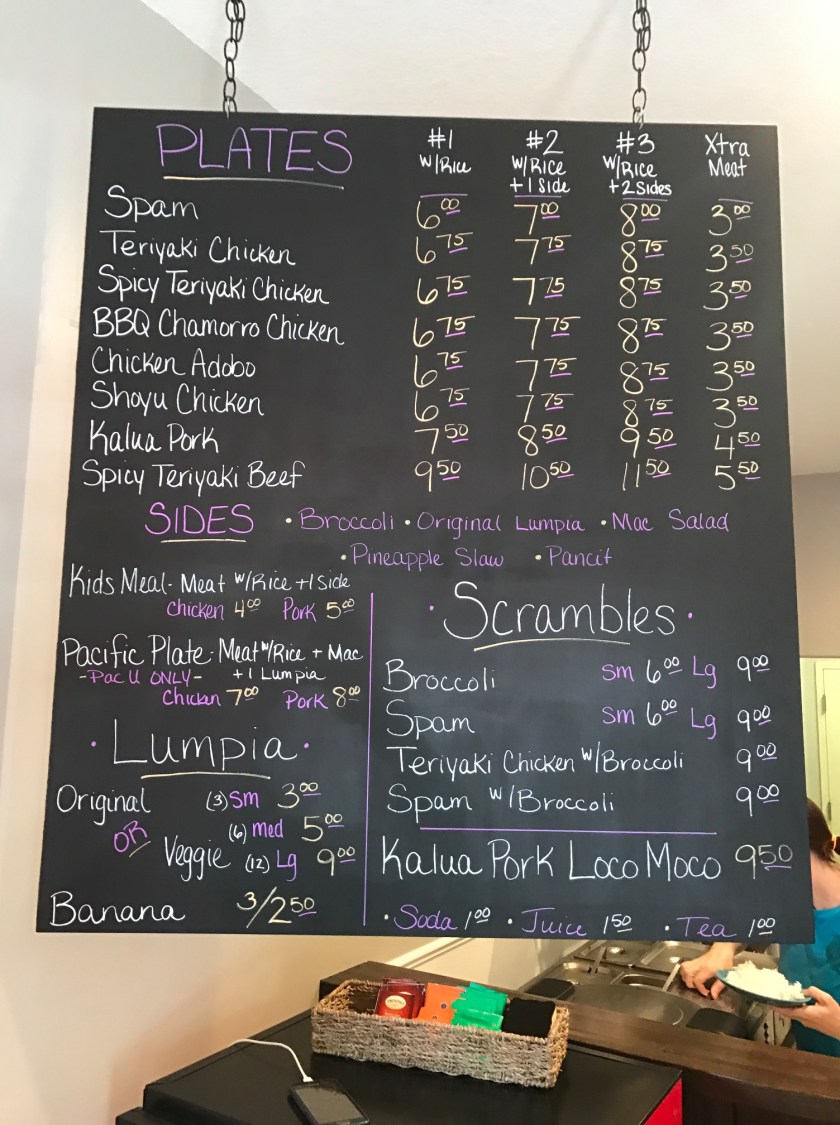 PLATES #1 #2 #3 Xtra
W/Rice W/Rice W/Rice Meat
+1 Side +2 Sides
Spam 6.00 7.00 8.00 3.00
Teriyaki Chicken 6.75 7.75 8.75 3.50
Spicy Teriyaki Chicken 6.75 7.75 8.75 3.50
BBQ Chamorro Chicken 6.75 7.75 8.75 3.50
Chicken Adobo 6.75 7.75 8.75 3.50
Shoyu Chicken 6.75 7.75 8.75 3.50
Kalua Pork 7.50 8.50 9.50 4.50
Spicy Teriyaki Beef 9.50 10.50 11.50 5.50
SIDES • Broccoli • Original Lumpia • Mac Salad
• Pineapple Slaw • Pancit
Kids Meal - Meat w/Rice +1 Side
Chicken 4.00 Pork 5.00
Pacific Plate - Meat w/Rice + Mac
-Pac U ONLY- +1 Lumpia
Chicken 7.00 Pork 8.00
• Lumpia •
Original (3) Sm 3.00
OR (6) med 5.00
Veggie (12) Lg 9.00
Banana 3/2.50
• Scrambles •
Broccoli Sm 6.00 Lg 9.00
Spam Sm 6.00 Lg 9.00
Teriyaki Chicken w/Broccoli 9.00
Spam w/Broccoli 9.00
Kalua Pork Loco Moco 9.50
• Soda 1.00 • Juice 1.50 • Tea 1.00